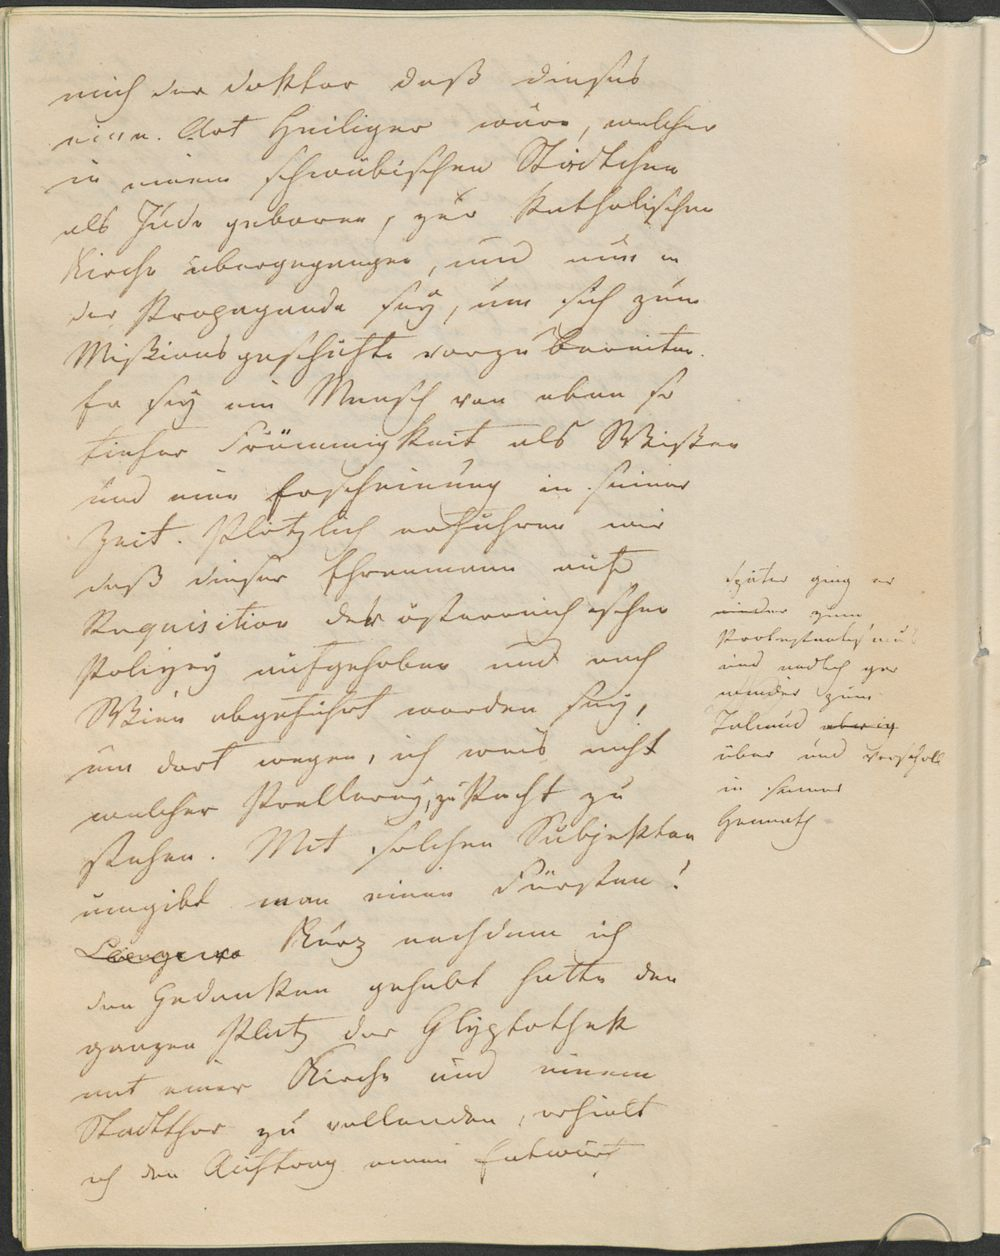 mich der Doktor daß dieses
eine Art Heiliger wäre, welcher
in einem schwäbischen Städtchen
als Jude geboren, zur katholischen
Kirche übergegangen, und nun in
der Propaganda sey, um sich zum
Missionsgeschäfte vorzubereiten.
Er sey ein Mensch von eben so
tiefer Frömmigkeit als Wissen
und eine Erscheinung in seiner
Zeit. Plötzlich erfuhren wir
daß dieser Ehrenmann auf
Requisition der österreichischen
Polizey aufgehoben und nach
Wien abgeführt worden sey,
um dort wegen, ich weis nicht
welcher Prellerey, zu Recht zu
stehen. Mit solchen Subjekten
umgibt man einen Fürsten!
Kurz nachdem ich
den Gedanken gehabt hatte den
ganzen Platz der Glyptothek
mit einer Kirche und einem
Stadtthor zu vollenden, erhielt
ich den Auftrag einen Entwurf
Später ging er
wieder zum
Protestantismus
und endlich gar
wieder zum
Talmud
über und verscholl
in seiner
Heimath